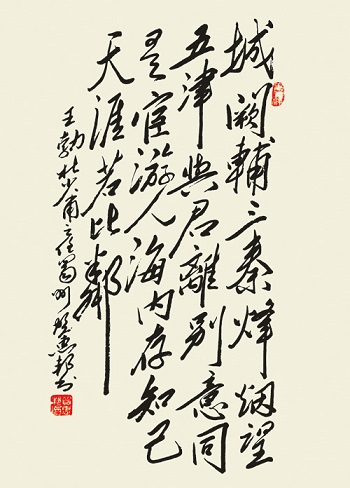 城闕輔三秦烽烟望
五津與君離別意同
是宦游人海内存知己
天涯若比鄰
王勃杜少甫之任蜀州